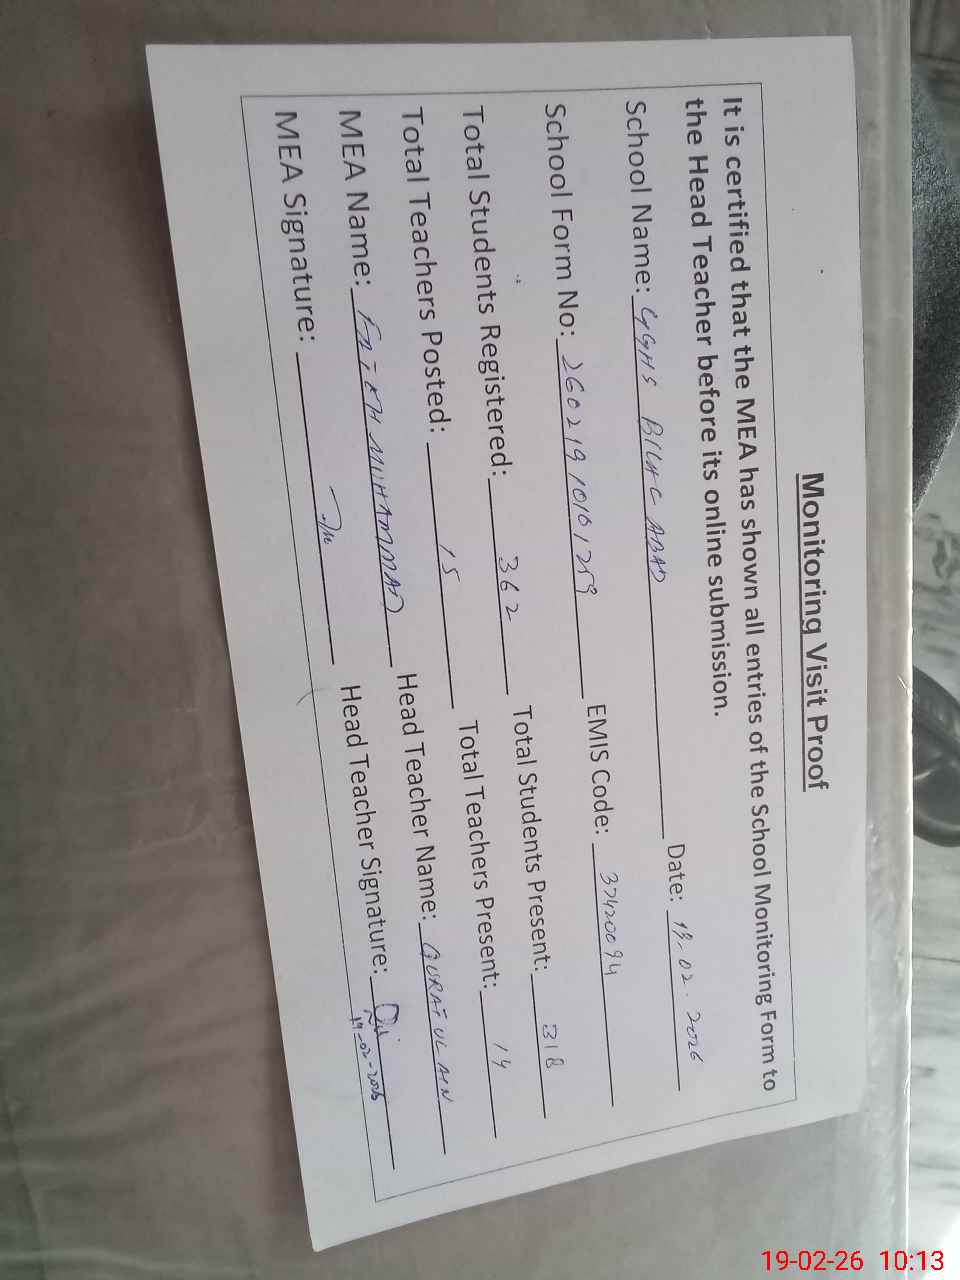 Monitoring Visit Proof
It is certified that the MEA has shown all entries of the School Monitoring Form to
the Head Teacher before its online submission.
School Name: GGHS ABAD Date: 19-02-2026
School Form No: 26021910101259 EMIS Code: 37420094
Total Students Registered: 362 Total Students Present: 318
Total Teachers Posted: 15 Total Teachers Present: 14
MEA Name: MUHAMMAD Head Teacher Name: QURAT UL AIN
MEA Signature: Head Teacher Signature:
19-02-2026
19-02-26 10:13